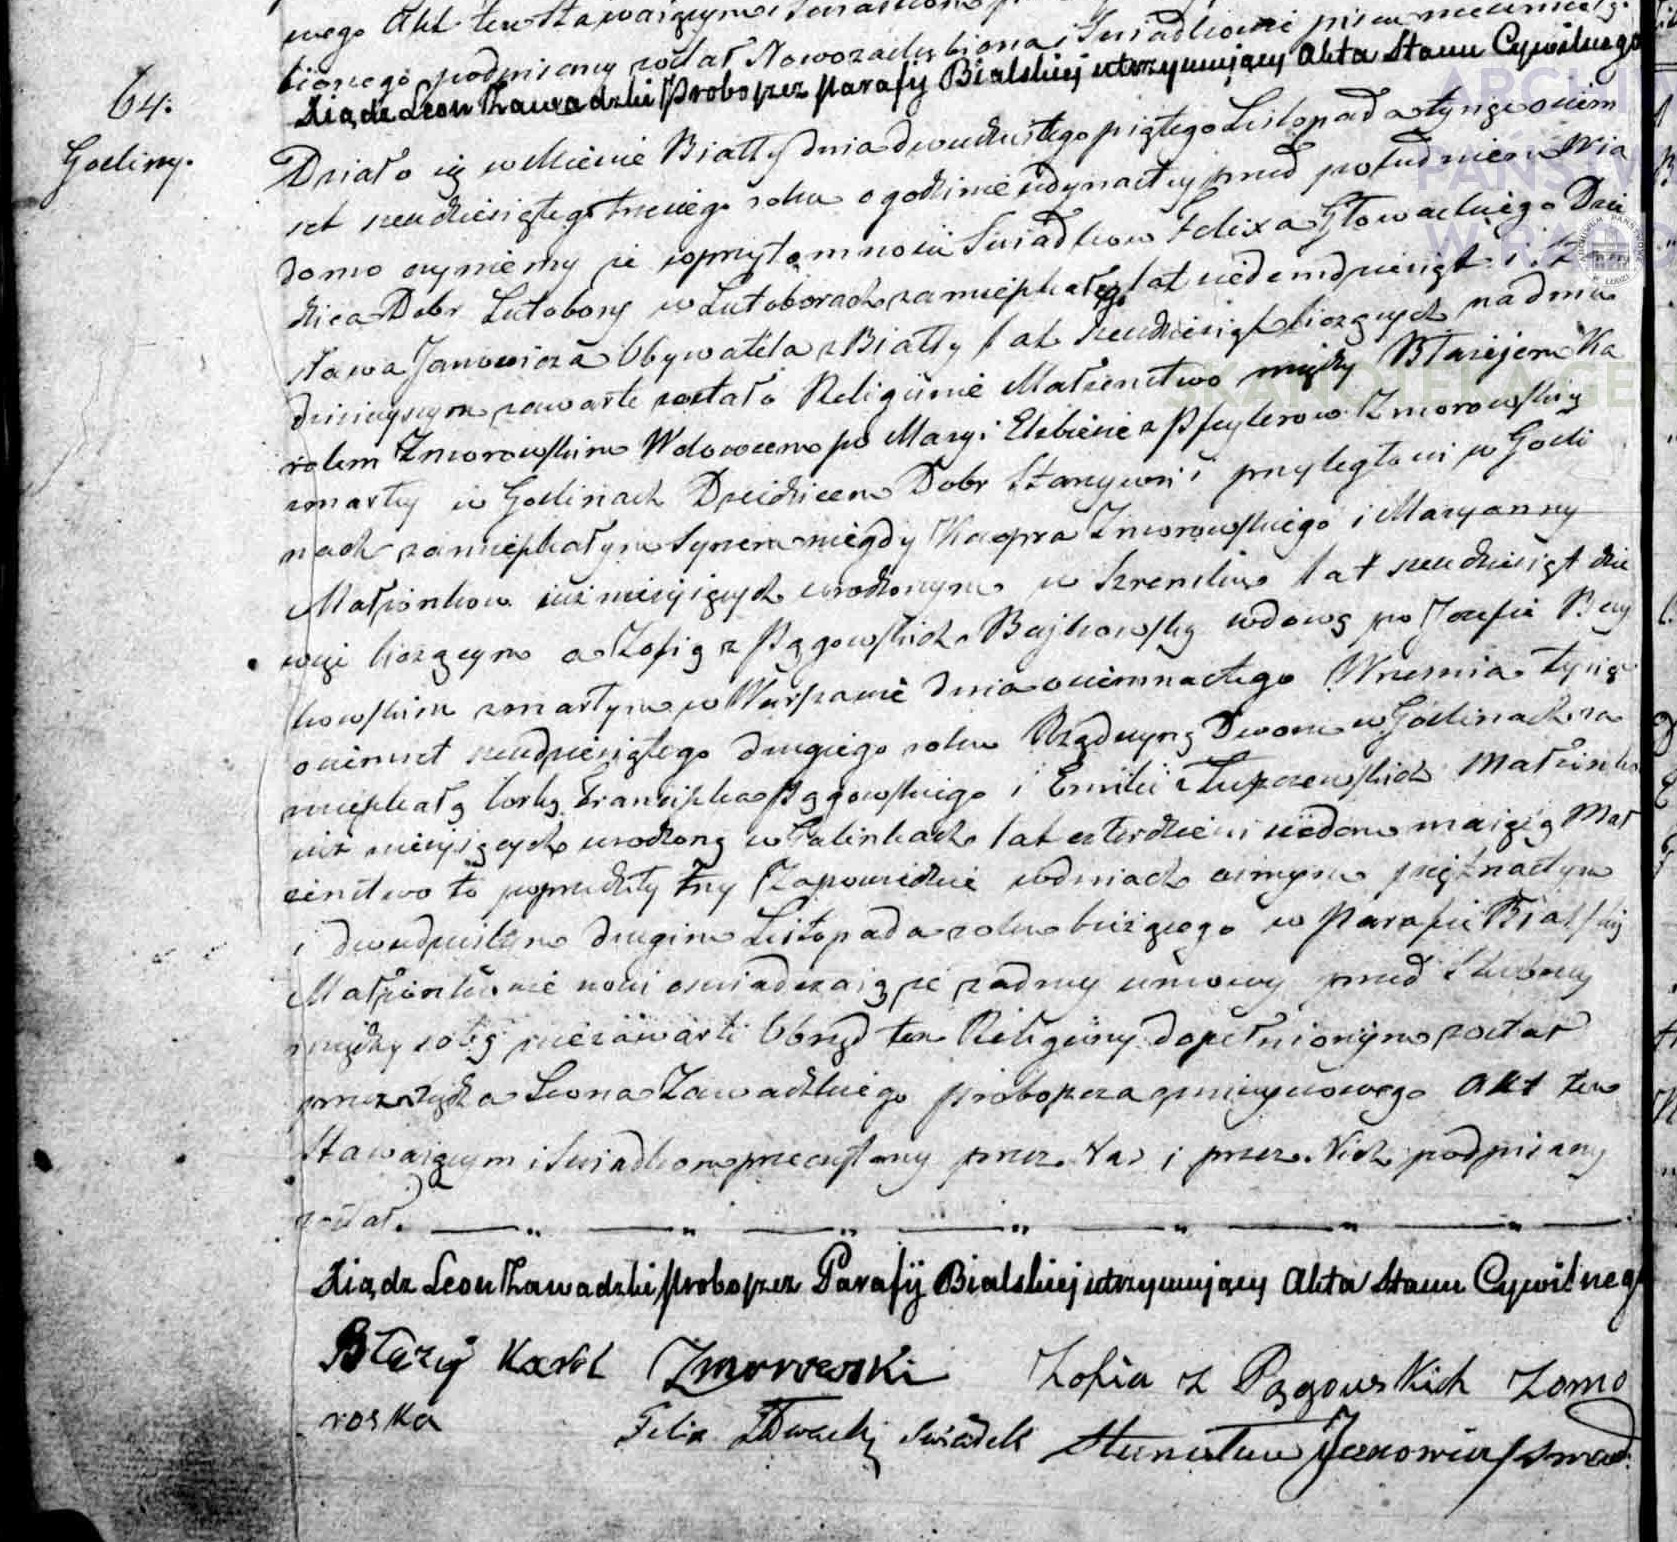 64.
Godziny.
wego Akt ten Stawaiącym i Swiadkom
bionego podpisany został Nowozaslubiona i Swiadkowie pisma nieumieją.
Xiądz Leon Zawadzki Proboszcz Parafij Bialskiej utrzymujący Akta Stanu Cywilnego
Działo się w Mieście Biały dnia dwudziestego piątego Listopada tysiąc ośm
set szesdziesiątego trzeciego roku o godzinie iedynastey przed południem Wia
domo czyniemy że w przytomności Swiadkow Felixa Głowackiego Dzie
dzica Dobr Lutobory w Lutoborach zamieszkałego lat siedemdziesiąt i Sta
sława Janowicza Obywatela z Biały lat szesdziesiąt liczących na dniu
dzisieyszym zawarte zostało Religijnie Małżenstwo między Błażejem Ka
rolem Zmorowskim Wdowcem po Maryi Elzbiecie z Pfeylerow Zmorowskiey
zmarłey w Godzinach Dziedzicem Dobr Starywsi i przyległosci w Godzi
nach zamieszkałym Synem niegdy Kacpra Zmorowskiego i Maryanny
Małżonkow iuż nieżyiących urodzonym w Szrensku lat szesdziesiąt dzie
więć liczącym a Zofią z Pągowskich Bajkowską wdową po Jozefie Bay
kowskim zmarłym w Warszawie dnia osiemnastego Wrzesnia tysiąc
osiemset szesdziesiątego drugiego roku Rządczynią Dworu w Godzinach za
mieszkałą Corką Franciszka Pągowskiego i Emilii z Małżonkow
iuż nieżyiących urodzoną w Galinkach lat czterdzieści siedem maiącą Mał
żenstwo to poprzedziły trzy Zapowiedzie w dniach osmym piętnastym
i dwudziestym drugim Listopada roku bieżącego w Parafii Bialskiey
Małżonkowie nowi oswiadczaią że żadney umowy przed slubney
między sobą niezawarli Obrząd ten Religijny dopełnionym został
przez Xiędza Leona Zawadzkiego proboszcza mieyscowego Akt ten
Stawaiącym i Swiadkom przeczytany przez Nas i przez Nich podpisany
został.
Xiądz Leon Zawadzki Proboszcz Parafij Bialskiej utrzymujący Akta Stanu Cywilnego
Błażej Karol Zmorowski Zofia z Pągowskich Zomo
roska Felix Głowacki Swiadek Stanisław Janowicz Swiad.